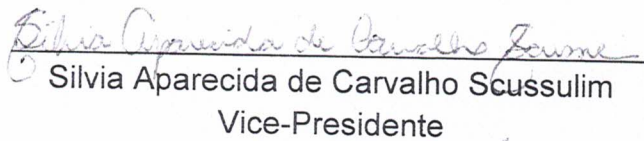 Silvia Aparecida de Carvalho
Silvia Aparecida de Carvalho Scussulim
Vice-Presidente